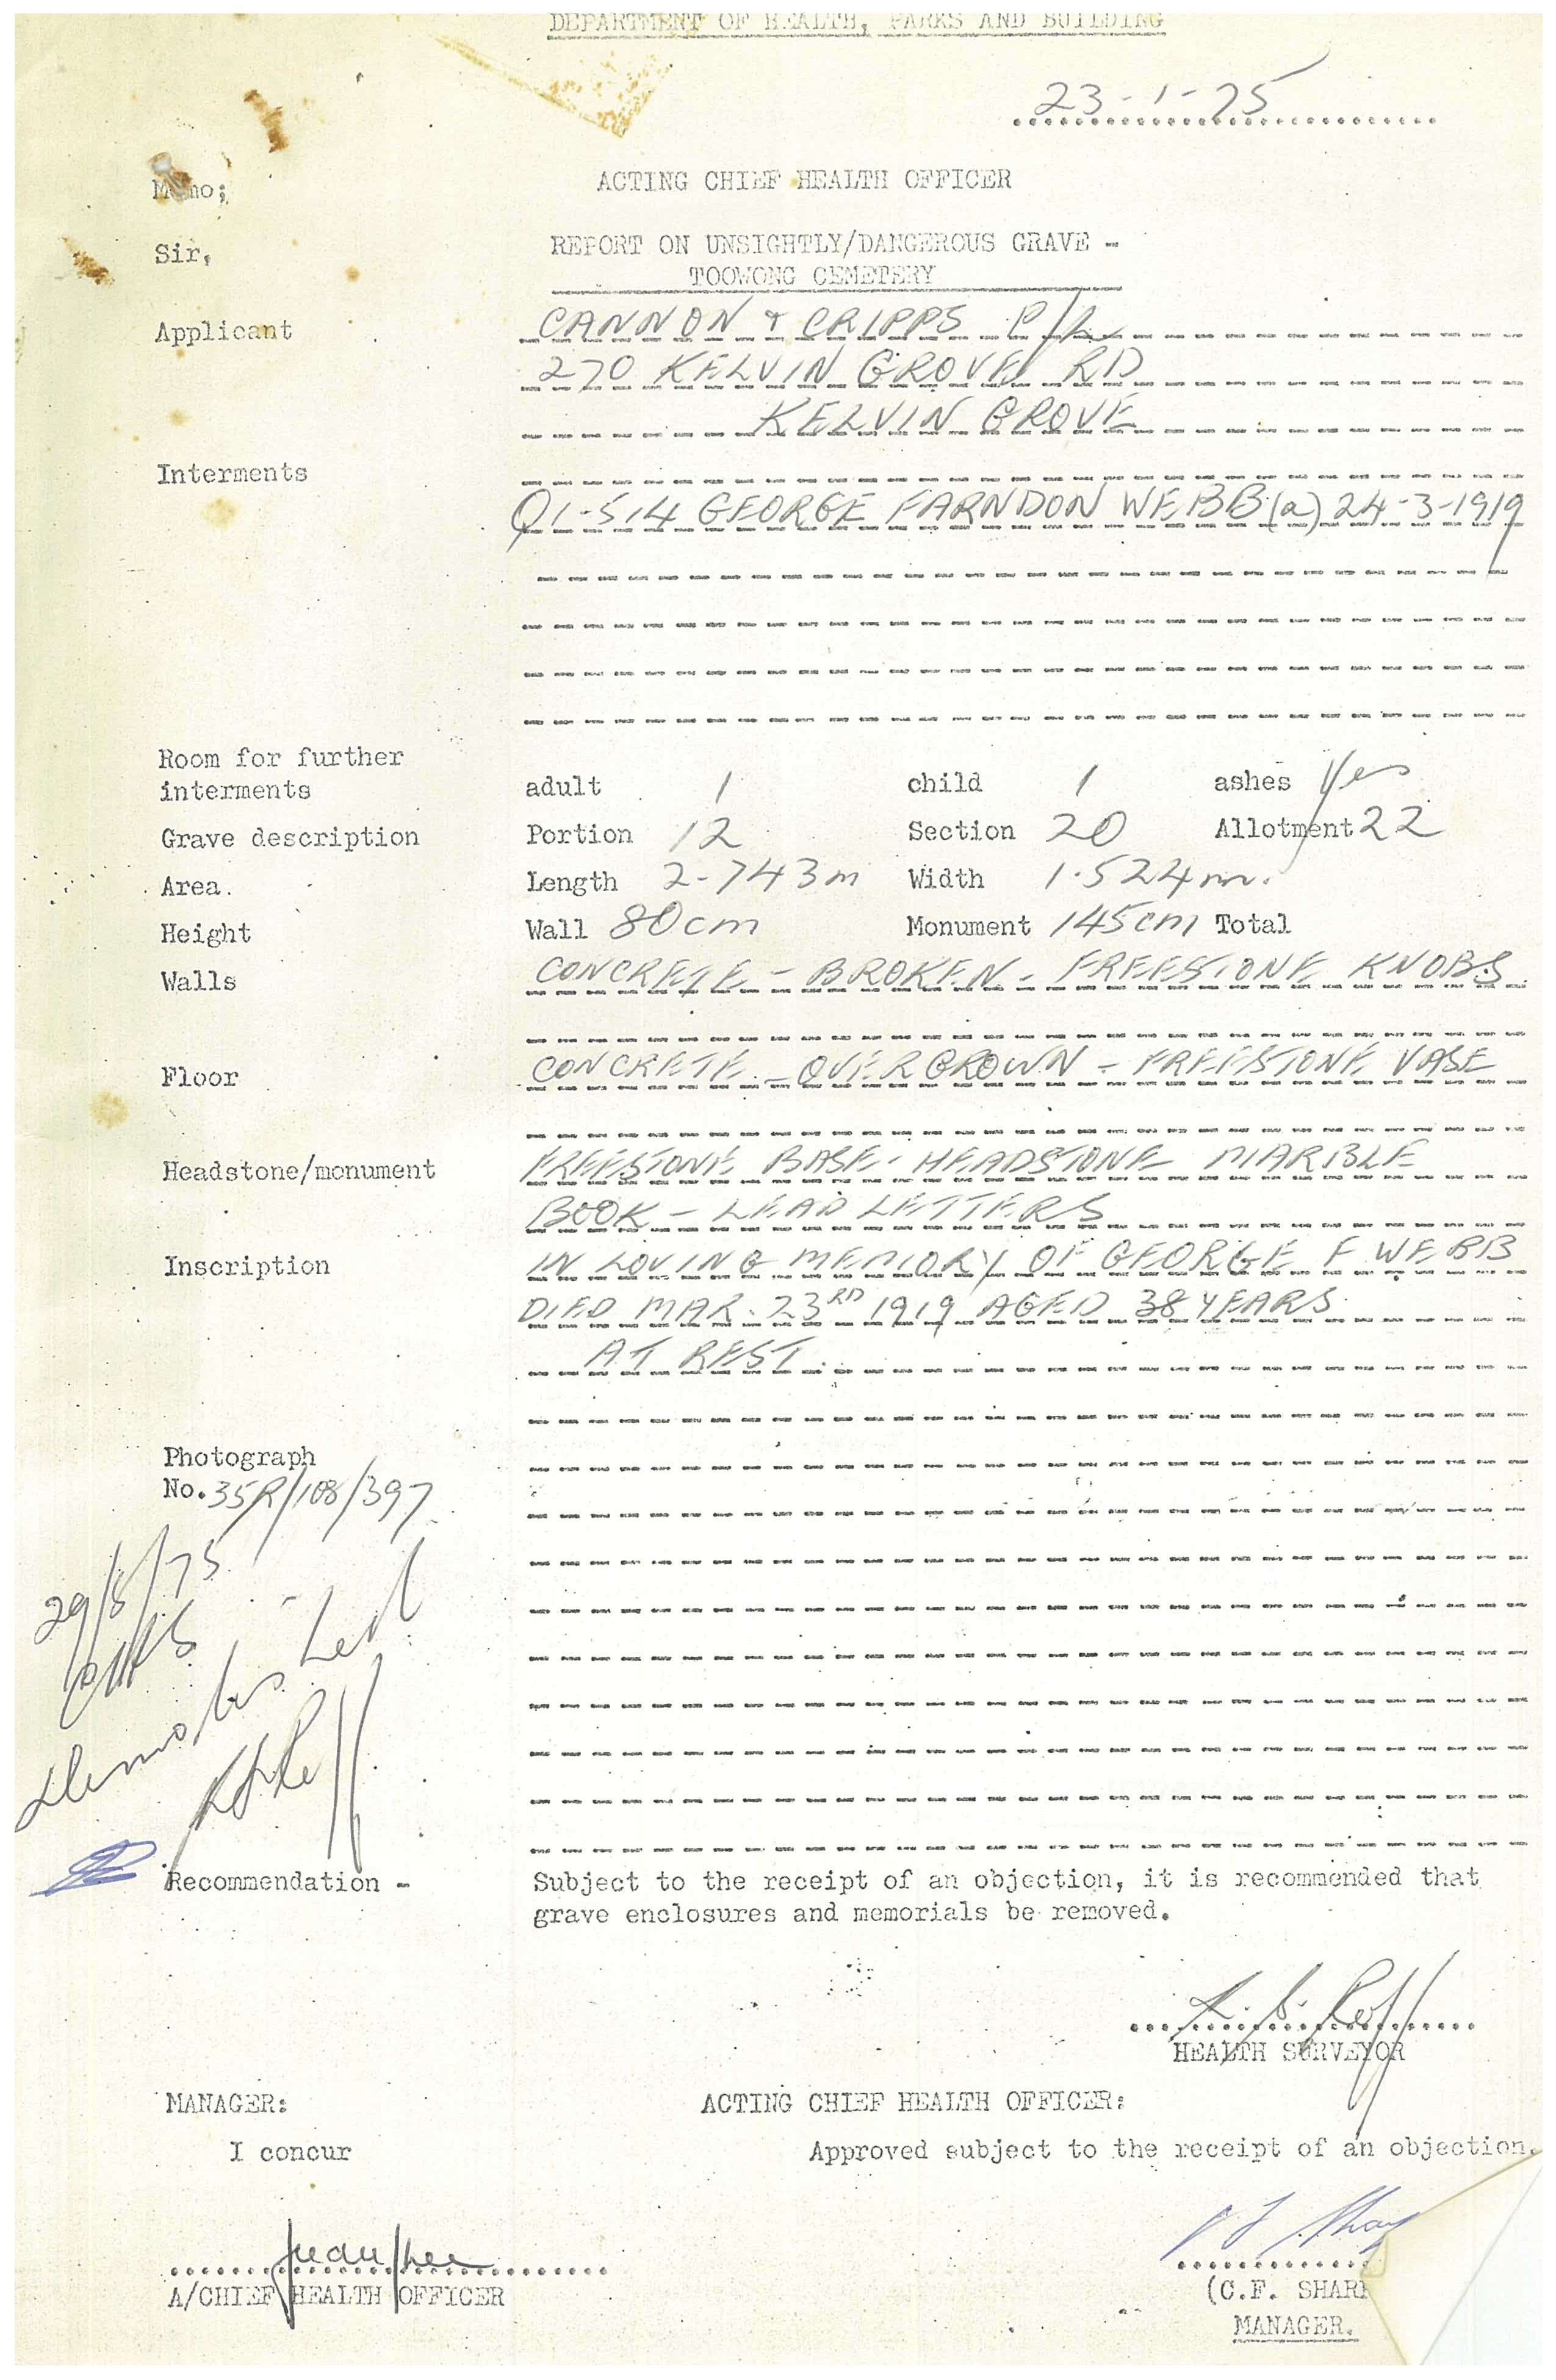 DEPARTMENT OF HEALTH, PARKS AND BUILDING
23-1-75
Memo;
ACTING CHIEF HEALTH OFFICER
Sir,
REPORT ON UNSIGHTLY/DANGEROUS GRAVE -
TOOWONG CEMETERY
Applicant CANNON & CRIPPS P/L
270 KELVIN GROVE RD
KELVIN GROVE
Interments
Q1-514 GEORGE FARNDON WEBB (a) 24-3-1919
Room for further
interments adult 1 child 1 ashes Yes
Grave description Portion 12 Section 20 Allotment 22
Area. Length 2.743m Width 1.524m.
Height Wall 80cm Monument 145cm Total
Walls CONCRETE - BROKEN - FREESTONE KNOBS.
Floor CONCRETE - OVERGROWN - FREESTONE VASE
Headstone/monument FREESTONE BASE - HEADSTONE MARBLE
BOOK - LEAD LETTERS
Inscription IN LOVING MEMORY OF GEORGE F WEBB
DIED MAR. 23RD 1919 AGED 38 YEARS.
AT REST.
Photograph
No. 35R/108/397
Recommendation - Subject to the receipt of an objection, it is recommended that
grave enclosures and memorials be removed.
HEALTH SURVEYOR
MANAGER: ACTING CHIEF HEALTH OFFICER:
I concur Approved subject to the receipt of an objection.
A/CHIEF HEALTH OFFICER (C.F. SHAR
MANAGER.